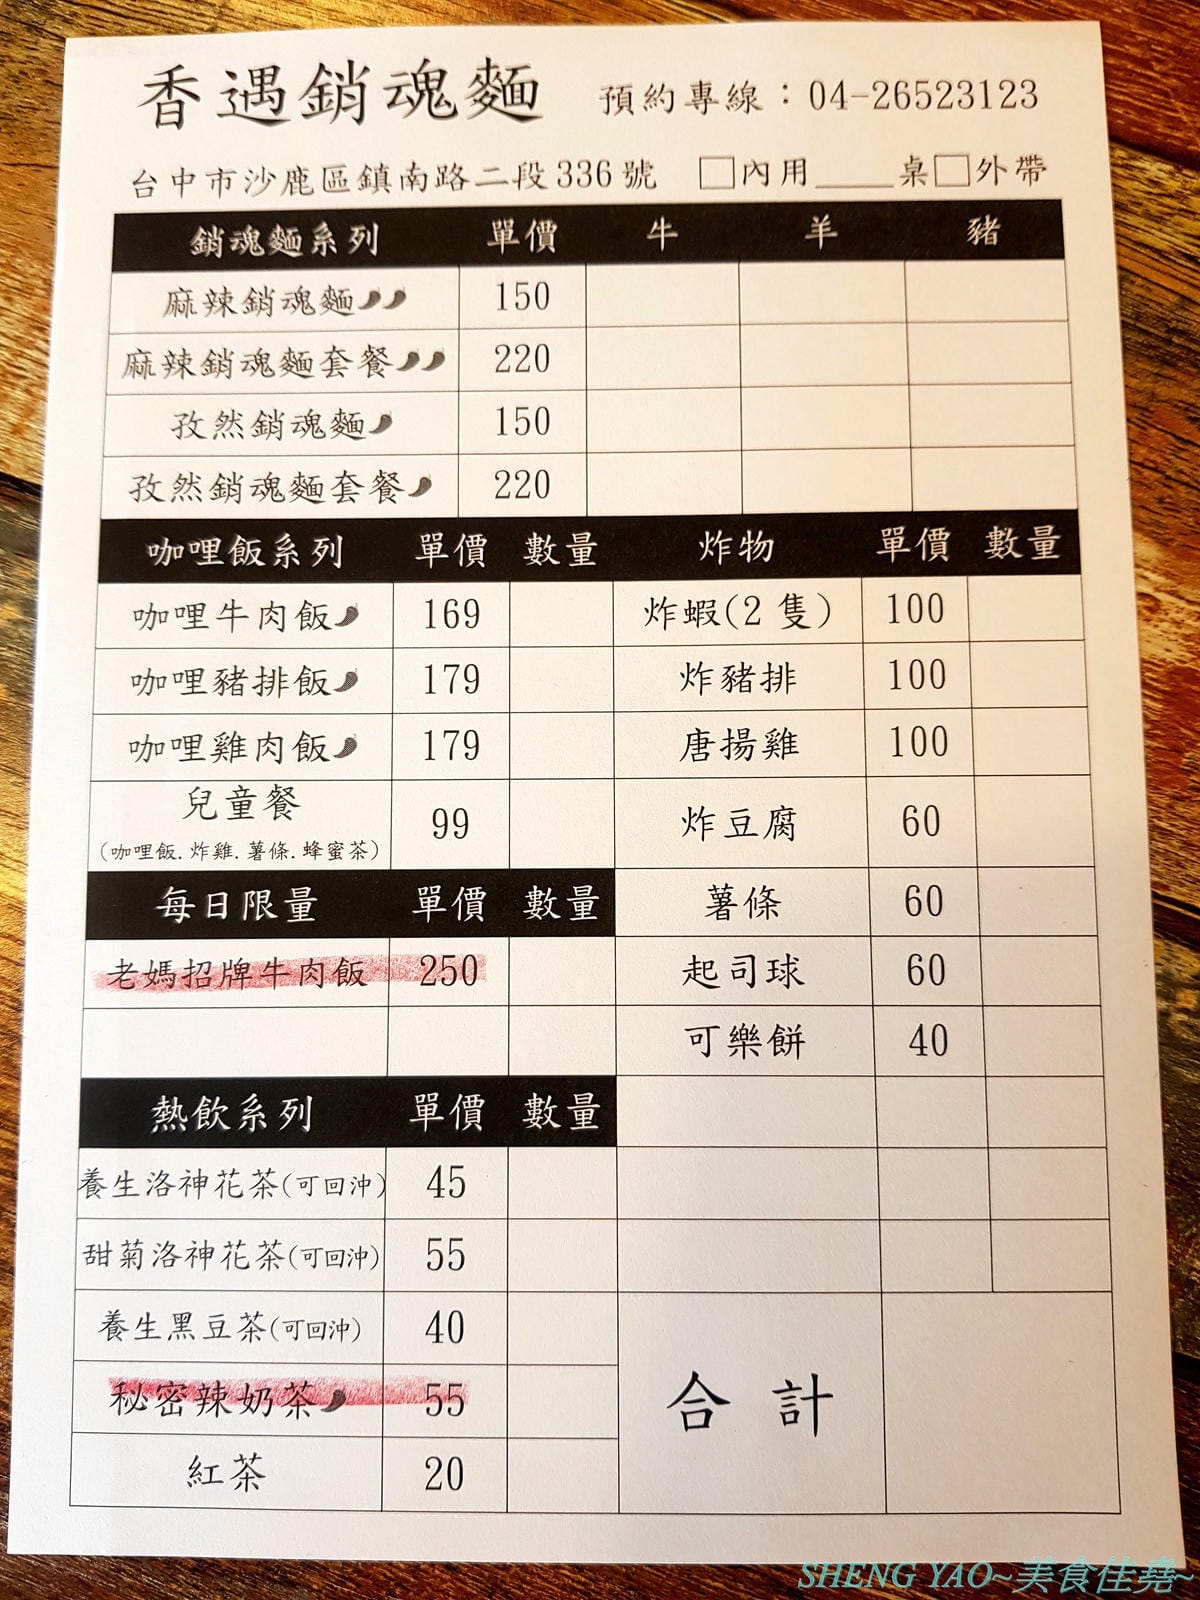 香遇銷魂麵 預約專線：04-26523123
台中市沙鹿區鎮南路二段336號 □內用____桌□外帶
銷魂麵系列 單價 牛 羊 豬
麻辣銷魂麵 150
麻辣銷魂麵套餐 220
孜然銷魂麵 150
孜然銷魂麵套餐 220
咖哩飯系列 單價 數量 炸物 單價 數量
咖哩牛肉飯 169 炸蝦(2隻) 100
咖哩豬排飯 179 炸豬排 100
咖哩雞肉飯 179 唐揚雞 100
兒童餐 99 炸豆腐 60
(咖哩飯.炸雞.薯條.蜂蜜茶)
每日限量 單價 數量 薯條 60
老媽招牌牛肉飯 250 起司球 60
可樂餅 40
熱飲系列 單價 數量
養生洛神花茶(可回沖) 45
甜菊洛神花茶(可回沖) 55
養生黑豆茶(可回沖) 40
秘密辣奶茶 55 合計
紅茶 20
SHENG YAO~美食佳堯~